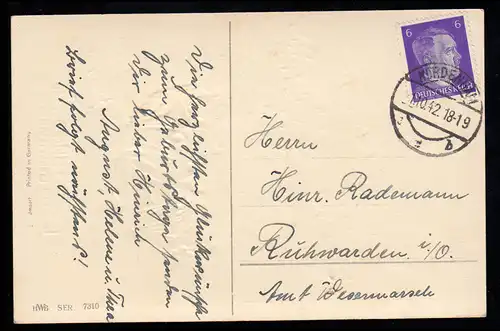 Die herzlichsten Glückwünsche
zum Geburtstage senden
Dir lieber Heinrich
August Helene u. Thea
Brief folgt nächstens!
Amacri Printed in Germany
HWB SER 7310
6 6
DEUTSCHES REICH
NORDENHAM
.10.42.18-19
b
Herrn
Hinr. Rademann
Ruhwarden i/O.
Amt Wesermarsch